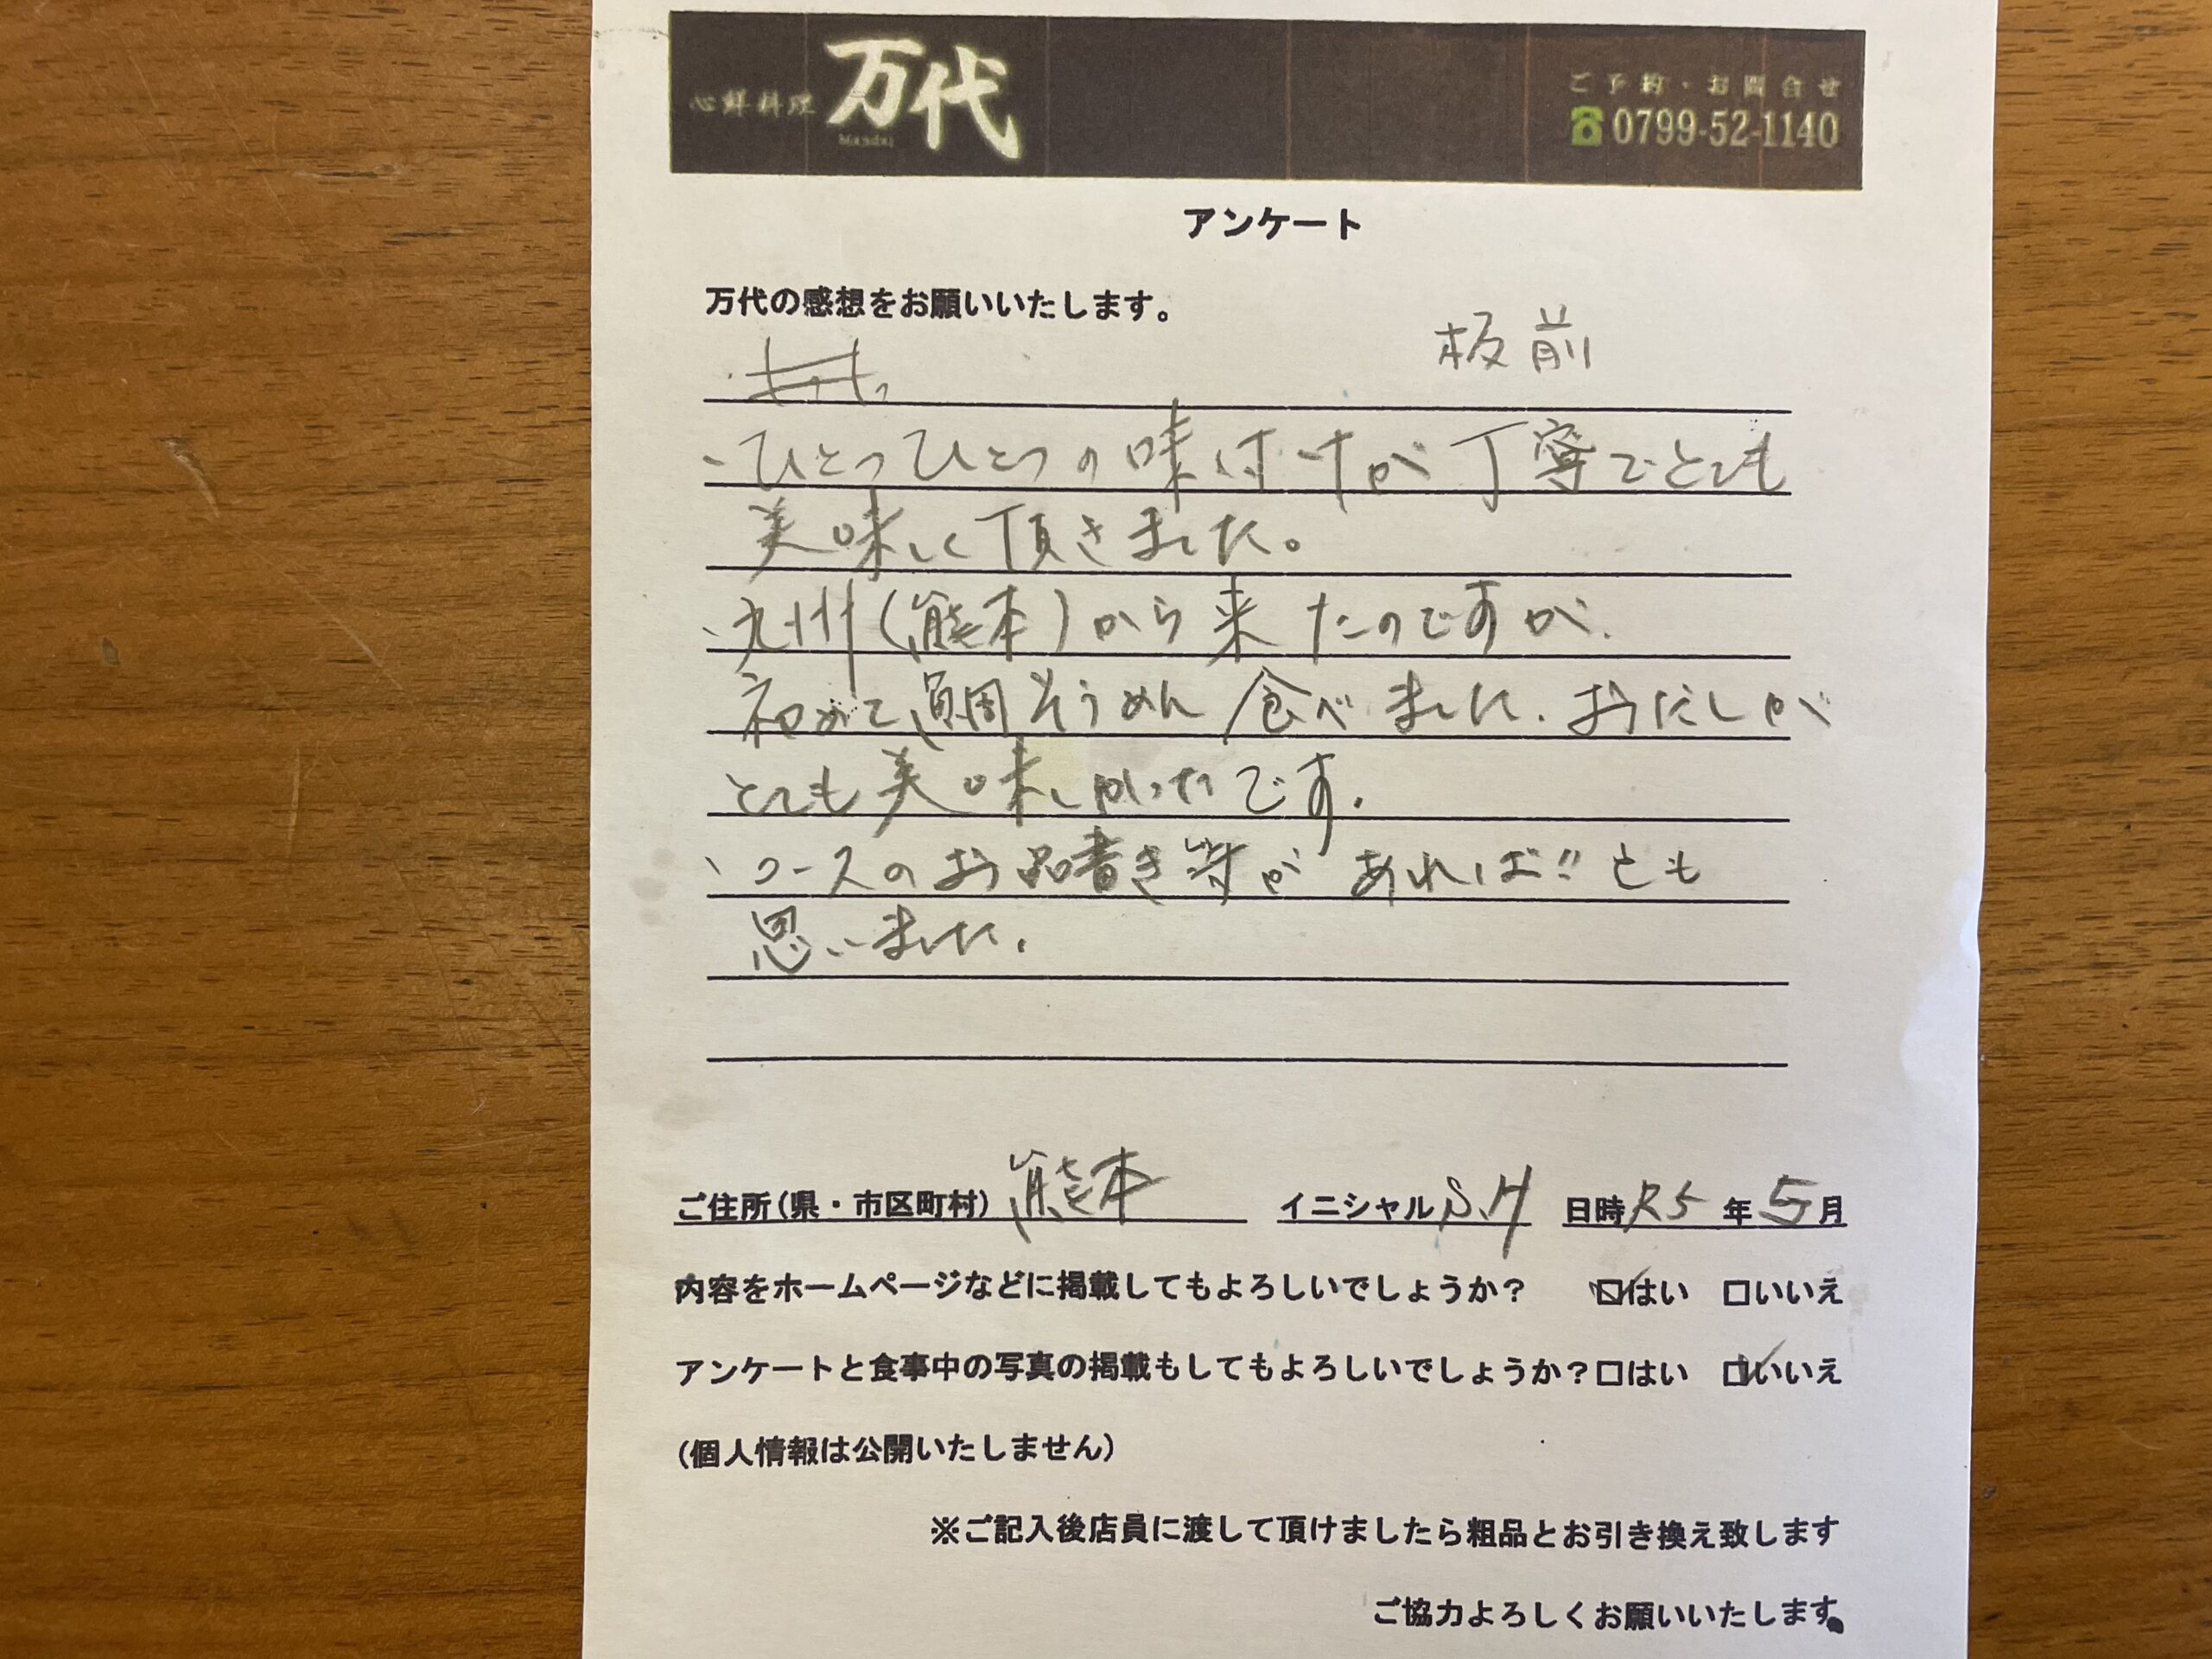 心鮮料理 万代
Mandai
ご予約・お問合せ
0799-52-1140
アンケート
万代の感想をお願いいたします。
板前
、ひとつひとつの味付けが丁寧でとても
美味しく頂きました。
、九州(熊本)から来たのですが、
初めて鯛そうめん食べました。おだしが
とても美味しかったです。
、コースのお品書き等があれば!!とも
思いました。
ご住所(県・市区町村) 熊本 イニシャル S.H 日時 R5 年 5 月
内容をホームページなどに掲載してもよろしいでしょうか? ☑はい □いいえ
アンケートと食事中の写真の掲載もしてもよろしいでしょうか?□はい ☑いいえ
(個人情報は公開いたしません)
※ご記入後店員に渡して頂けましたら粗品とお引き換え致します
ご協力よろしくお願いいたします。